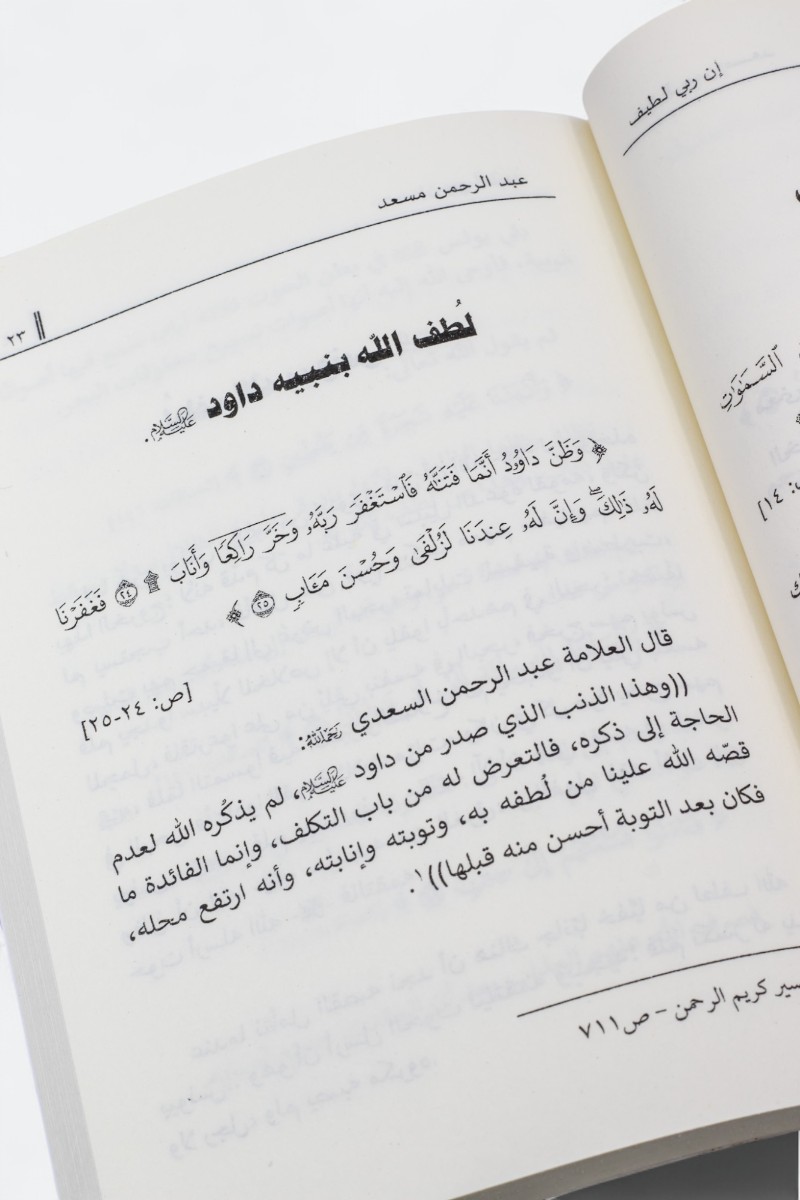 إن ربي لطيف
السَّمَٰوَٰتِ
١٤]
عبد الرحمن مسعد
٢٣
لُطف الله بنبيه داود عليه السلام.
﴿ وَظَنَّ دَاوُۥدُ أَنَّمَا فَتَنَّٰهُ فَٱسْتَغْفَرَ رَبَّهُۥ وَخَرَّ رَاكِعًا وَأَنَابَ ۩ ٢٤ فَغَفَرْنَا
لَهُۥ ذَٰلِكَ ۖ وَإِنَّ لَهُۥ عِندَنَا لَزُلْفَىٰ وَحُسْنَ مَـَٔابٍ ٢٥ ﴾
[ص: ٢٤-٢٥]
قال العلامة عبد الرحمن السعدي رحمه الله:
((وهذا الذنب الذي صدر من داود عليه السلام، لم يذكُره الله لعدم
الحاجة إلى ذكره، فالتعرض له من باب التكلف، وإنما الفائدة ما
قصّه الله علينا من لُطفه به، وتوبته وإنابته، وأنه ارتفع محله،
فكان بعد التوبة أحسن منه قبلها))١.
كريم الرحمن - ص٧١١